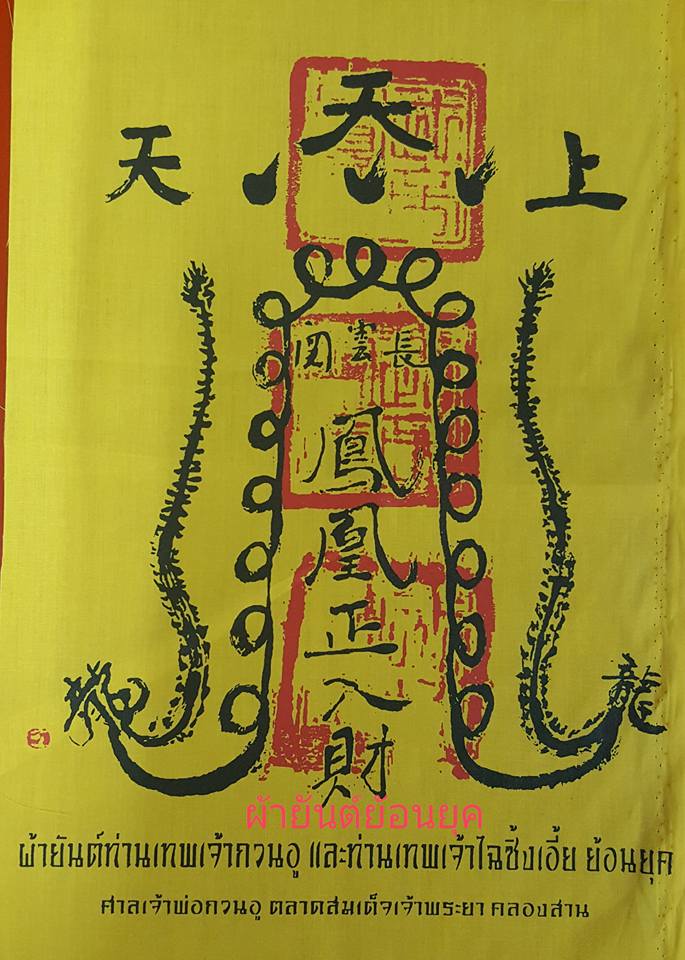 天 天 上
雲長
鳳凰正入財
龍
ผ้ายันต์ย้อนยุค
ผ้ายันต์ท่านเทพเจ้ากวนอู และท่านเทพเจ้าไฉซิ้งเอี้ย ย้อนยุค
ศาลเจ้าพ่อกวนอู ตลาดสมเด็จเจ้าพระยา คลองสาน